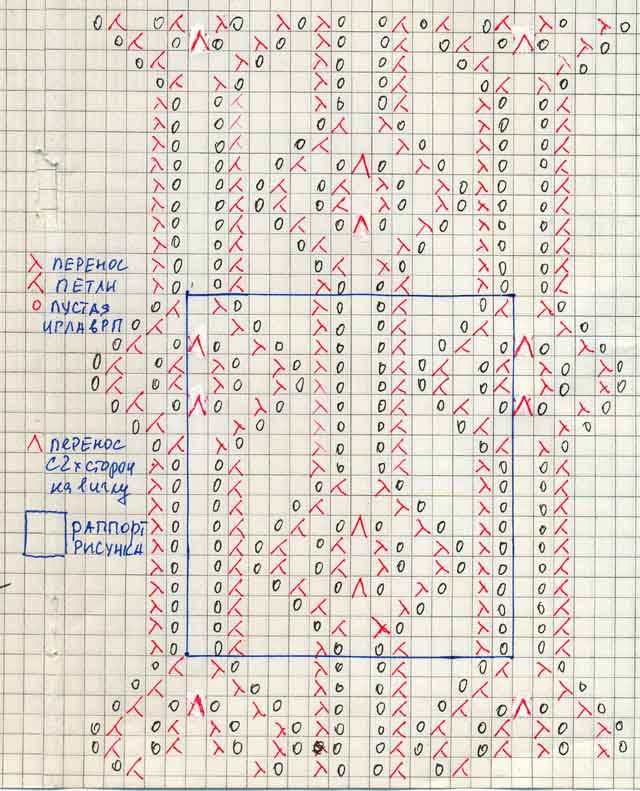 λ ПЕРЕНОС
⅄ ПЕТЛИ
О ПУСТАЯ
ИГЛА В РП
Λ ПЕРЕНОС
С 2х СТОРОН
на 1 иглу
РАППОРТ
РИСУНКА